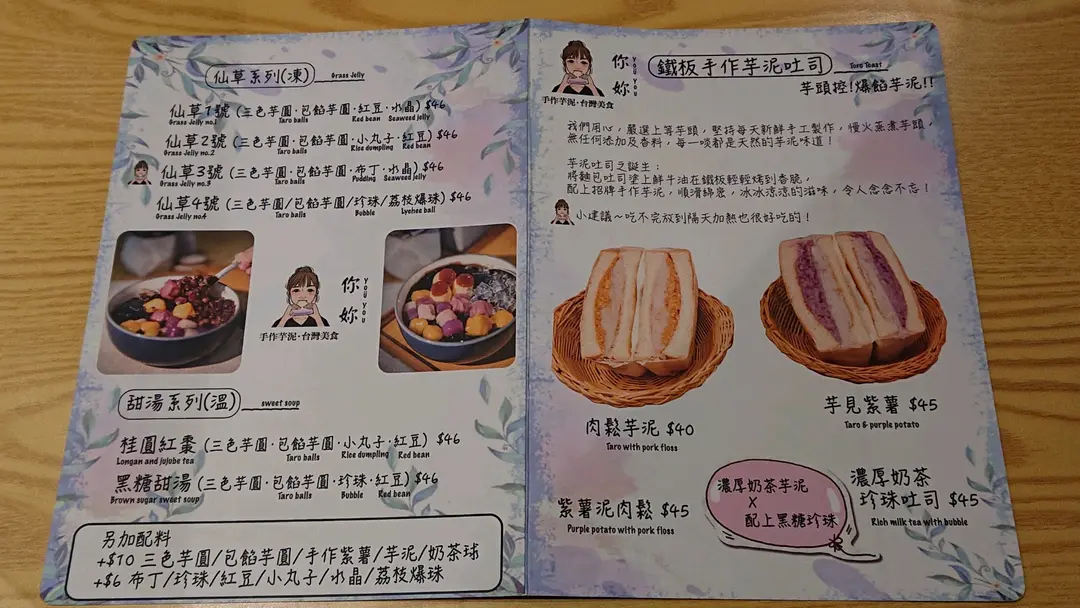 仙草系列(凍) Grass Jelly
仙草1號 (三色芋圓·包餡芋圓·紅豆·水晶) $46
Grass Jelly no.1 Taro balls Red bean Seaweed jelly
仙草2號 (三色芋圓·包餡芋圓·小丸子·紅豆) $46
Grass Jelly no.2 Taro balls Rice dumpling Red bean
仙草3號 (三色芋圓·包餡芋圓·布丁·水晶) $46
Grass Jelly no.3 Taro balls Pudding Seaweed jelly
仙草4號 (三色芋圓/包餡芋圓/珍珠/荔枝爆珠) $46
Grass Jelly no.4 Taro balls Bubble Lychee ball
你妳
YOU YOU
手作芋泥·台灣美食
甜湯系列(溫) sweet soup
桂圓紅棗 (三色芋圓·包餡芋圓·小丸子·紅豆) $46
Longan and jujube tea Taro balls Rice dumpling Red bean
黑糖甜湯 (三色芋圓·包餡芋圓·珍珠·紅豆) $46
Brown sugar sweet soup Taro balls Bubble Red bean
另加配料
+$10 三色芋圓/包餡芋圓/手作紫薯/芋泥/奶茶球
+$6 布丁/珍珠/紅豆/小丸子/水晶/荔枝爆珠
你妳
YOU YOU
手作芋泥·台灣美食
鐵板手作芋泥吐司 Toro Toast
芋頭控!爆餡芋泥!!
我們用心，嚴選上等芋頭，堅持每天新鮮手工製作，慢火蒸煮芋頭，
無任何添加及香料，每一啖都是天然的芋泥味道！
芋泥吐司之誕生：
將麵包吐司塗上鮮牛油在鐵板輕輕烤到香脆，
配上招牌手作芋泥，順滑綿密，冰冰涼涼的滋味，令人念念不忘！
小建議～吃不完放到隔天加熱也很好吃的！
肉鬆芋泥 $40
Taro with pork floss
芋見紫薯 $45
Taro & purple potato
紫薯泥肉鬆 $45
Purple potato with pork floss
濃厚奶茶芋泥
X
配上黑糖珍珠
濃厚奶茶
珍珠吐司 $45
Rich milk tea with bubble